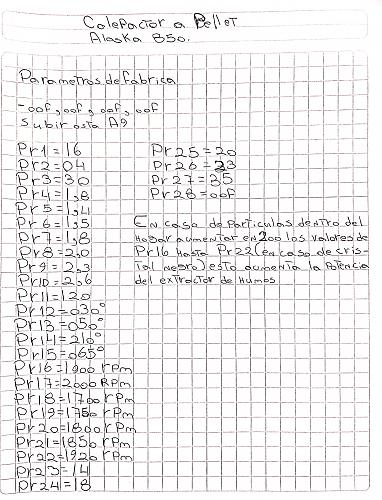 Calefactor a Pellet
Alaska 850.
Parametros de fabrica
-oof, oof, oof, oof
Subir asta A9
Pr1=16
Pr2=04
Pr3=30
Pr4=1,8
Pr5=1,4
Pr6=1,5
Pr7=1,8
Pr8=2,0
Pr9=2,3
Pr10=2,6
Pr11=120
Pr12=030°
Pr13=050°
Pr14=210°
Pr15=065°
Pr16=1900 RPm
Pr17=2000 RPm
Pr18=1700 RPm
Pr19=1750 RPm
Pr20=1800 RPm
Pr21=1850 RPm
Pr22=1920 RPm
Pr23=14
Pr24=18
Pr25=20
Pr26=23
Pr27=35
Pr28=oof
En caso de Particulas dentro del
Hogar aumentar en 200 los valores de
Pr16 Hasta Pr22(en caso de cris-
tal negro) esto aumenta la Potencia
del extractor de Humos